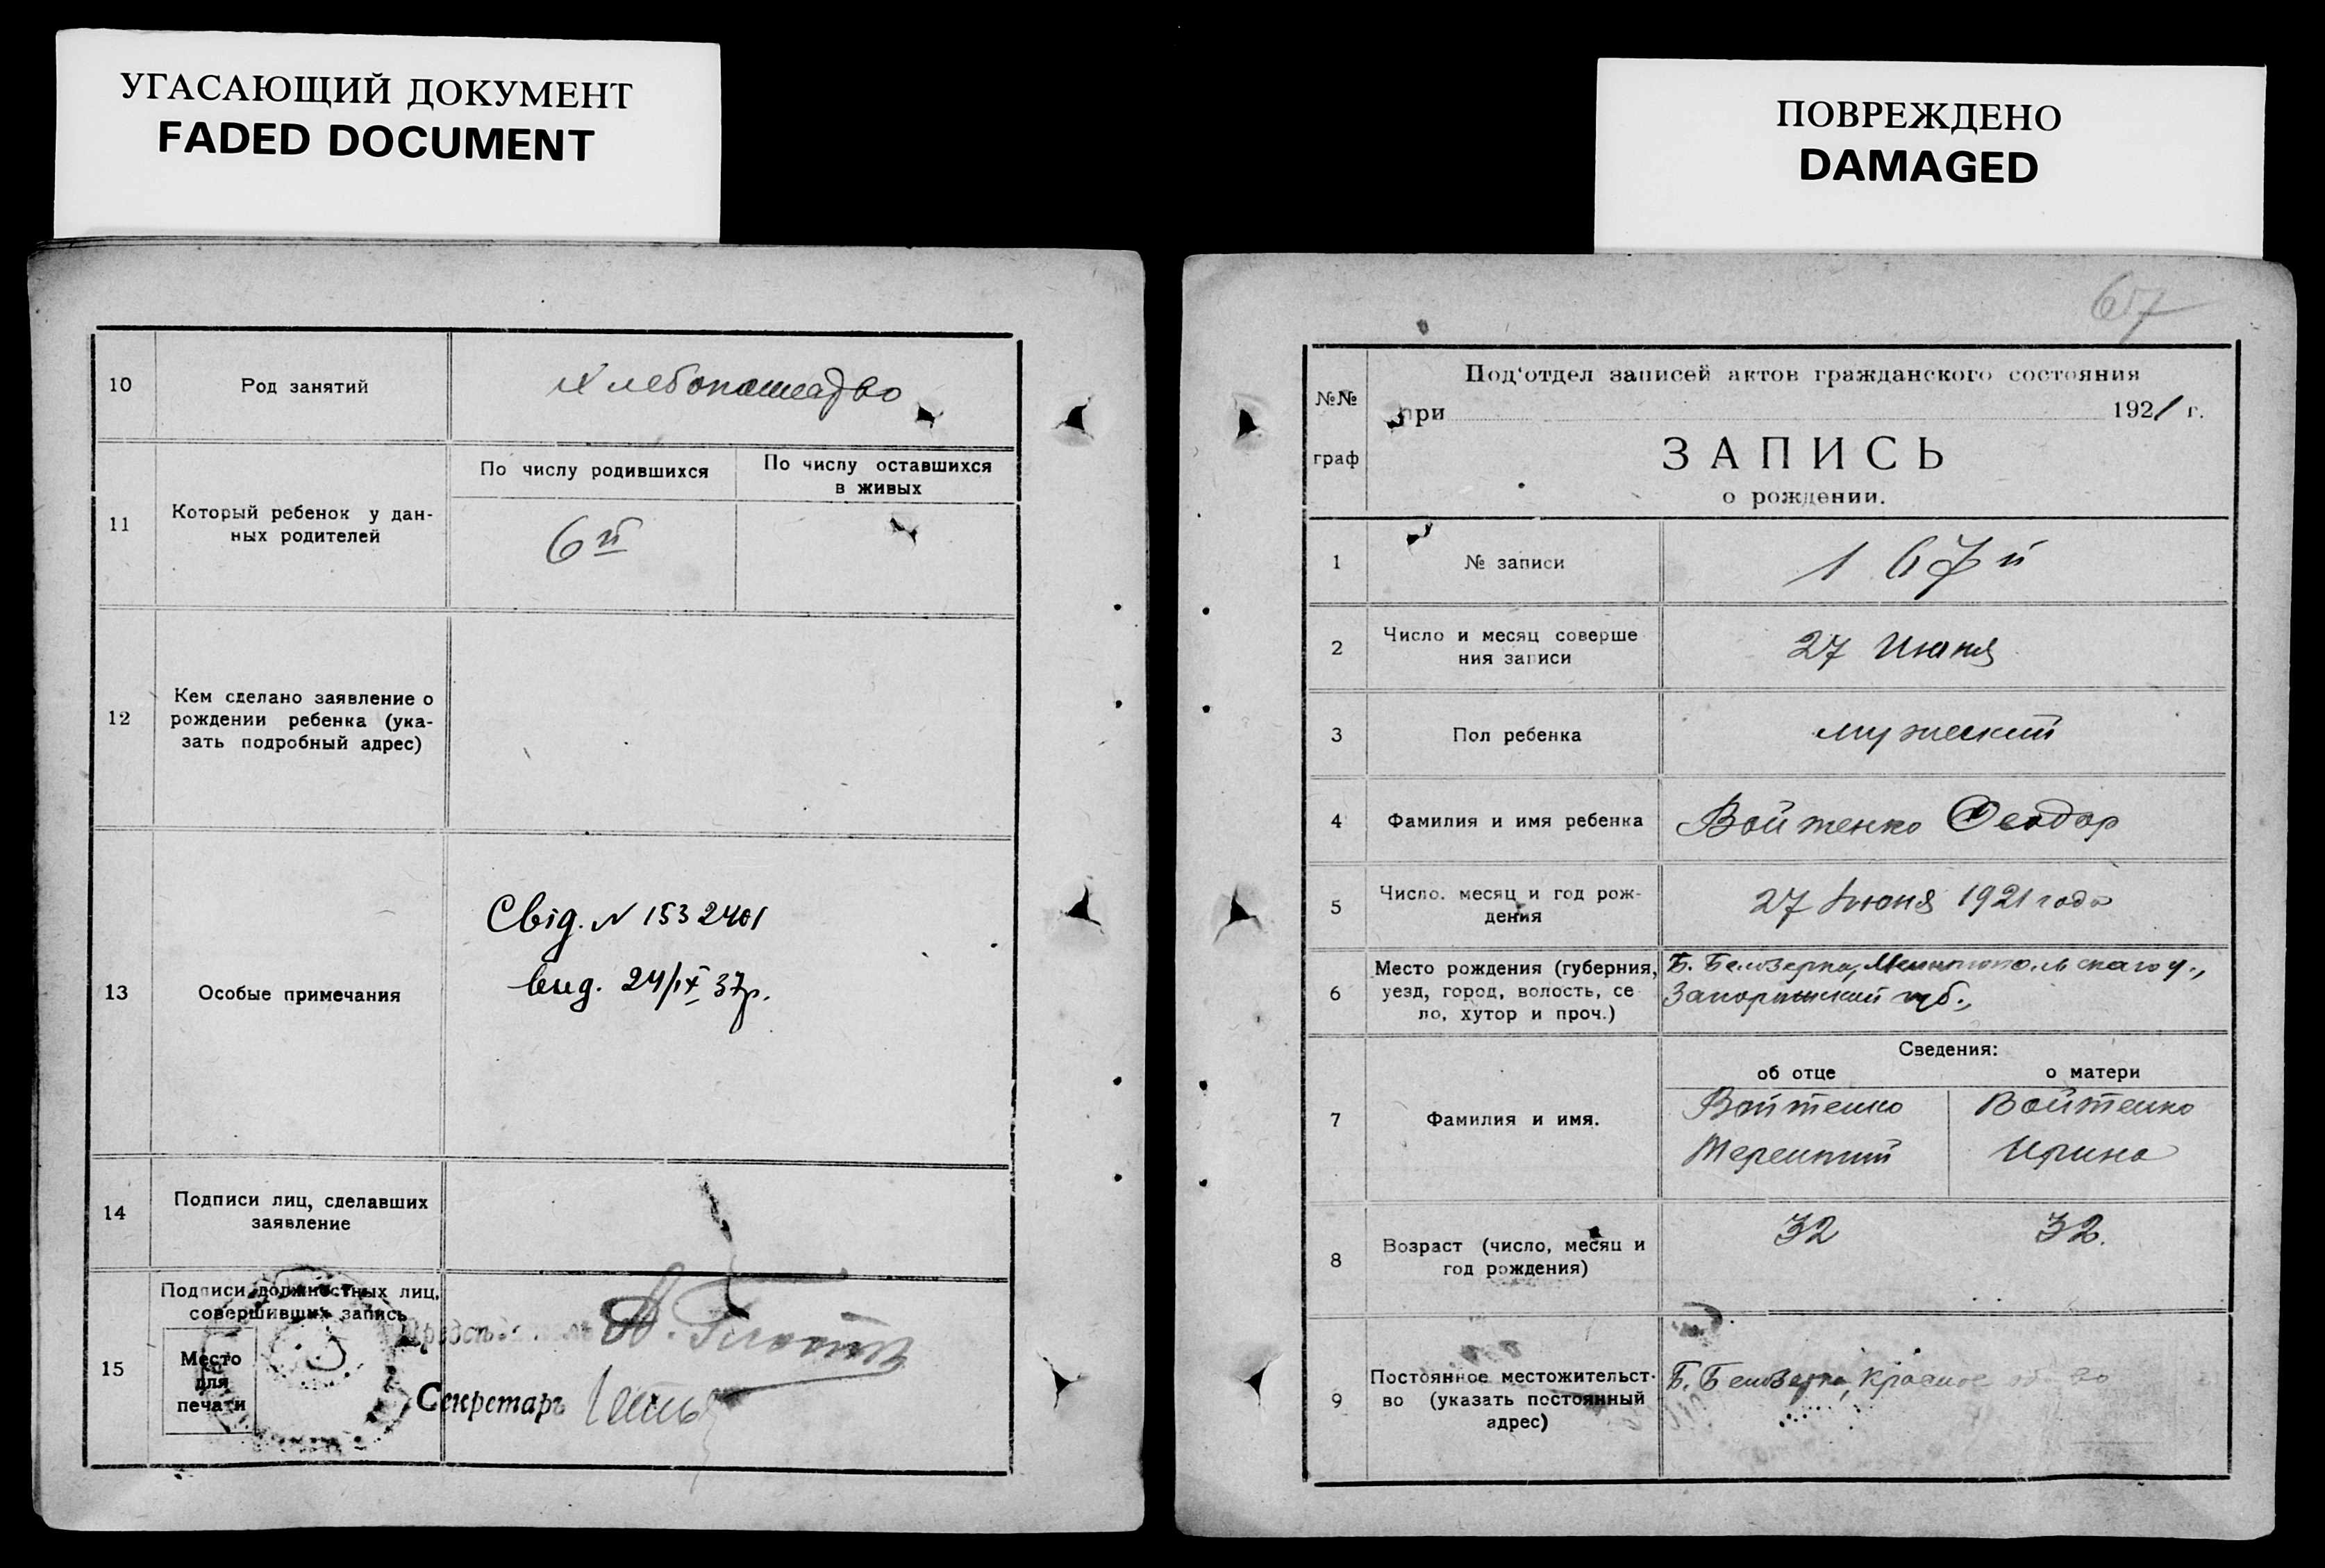 УГАСАЮЩИЙ ДОКУМЕНТ
FADED DOCUMENT
10
Род занятий
Хлебопашество
11
Который ребенок у дан-
ных родителей
По числу родившихся
По числу оставшихся
в живых
6й
12
Кем сделано заявление о
рождении ребенка (ука-
зать подробный адрес)
13
Особые примечания
Свід. N 1532401
вид. 24/IX 37р.
14
Подписи лиц, сделавших
заявление
15
Подписи должностных лиц,
совершивших запись
Место
для
печати
Секретарь
ПОВРЕЖДЕНО
DAMAGED
№№
граф
Под'отдел записей актов гражданского состояния
при 1921 г.
ЗАПИСЬ
о рождении.
1
№ записи
167й
2
Число и месяц соверше
ния записи
27 Июня
3
Пол ребенка
мужеский
4
Фамилия и имя ребенка
Войтенко Феодор
5
Число. месяц и год рож-
дения
27 Июня 1921 года
6
Место рождения (губерния,
уезд, город, волость, се
ло, хутор и проч.)
Б. Белозерка, Мелитопольского у.,
Запорожской губ.,
Сведения:
об отце
о матери
7
Фамилия и имя.
Войтенко
Терентий
Войтенко
Ирина
8
Возраст (число, месяц и
год рождения)
32
32.
9
Постоянное местожительст-
во (указать постоянный
адрес)
Б. Белозерка, Красное